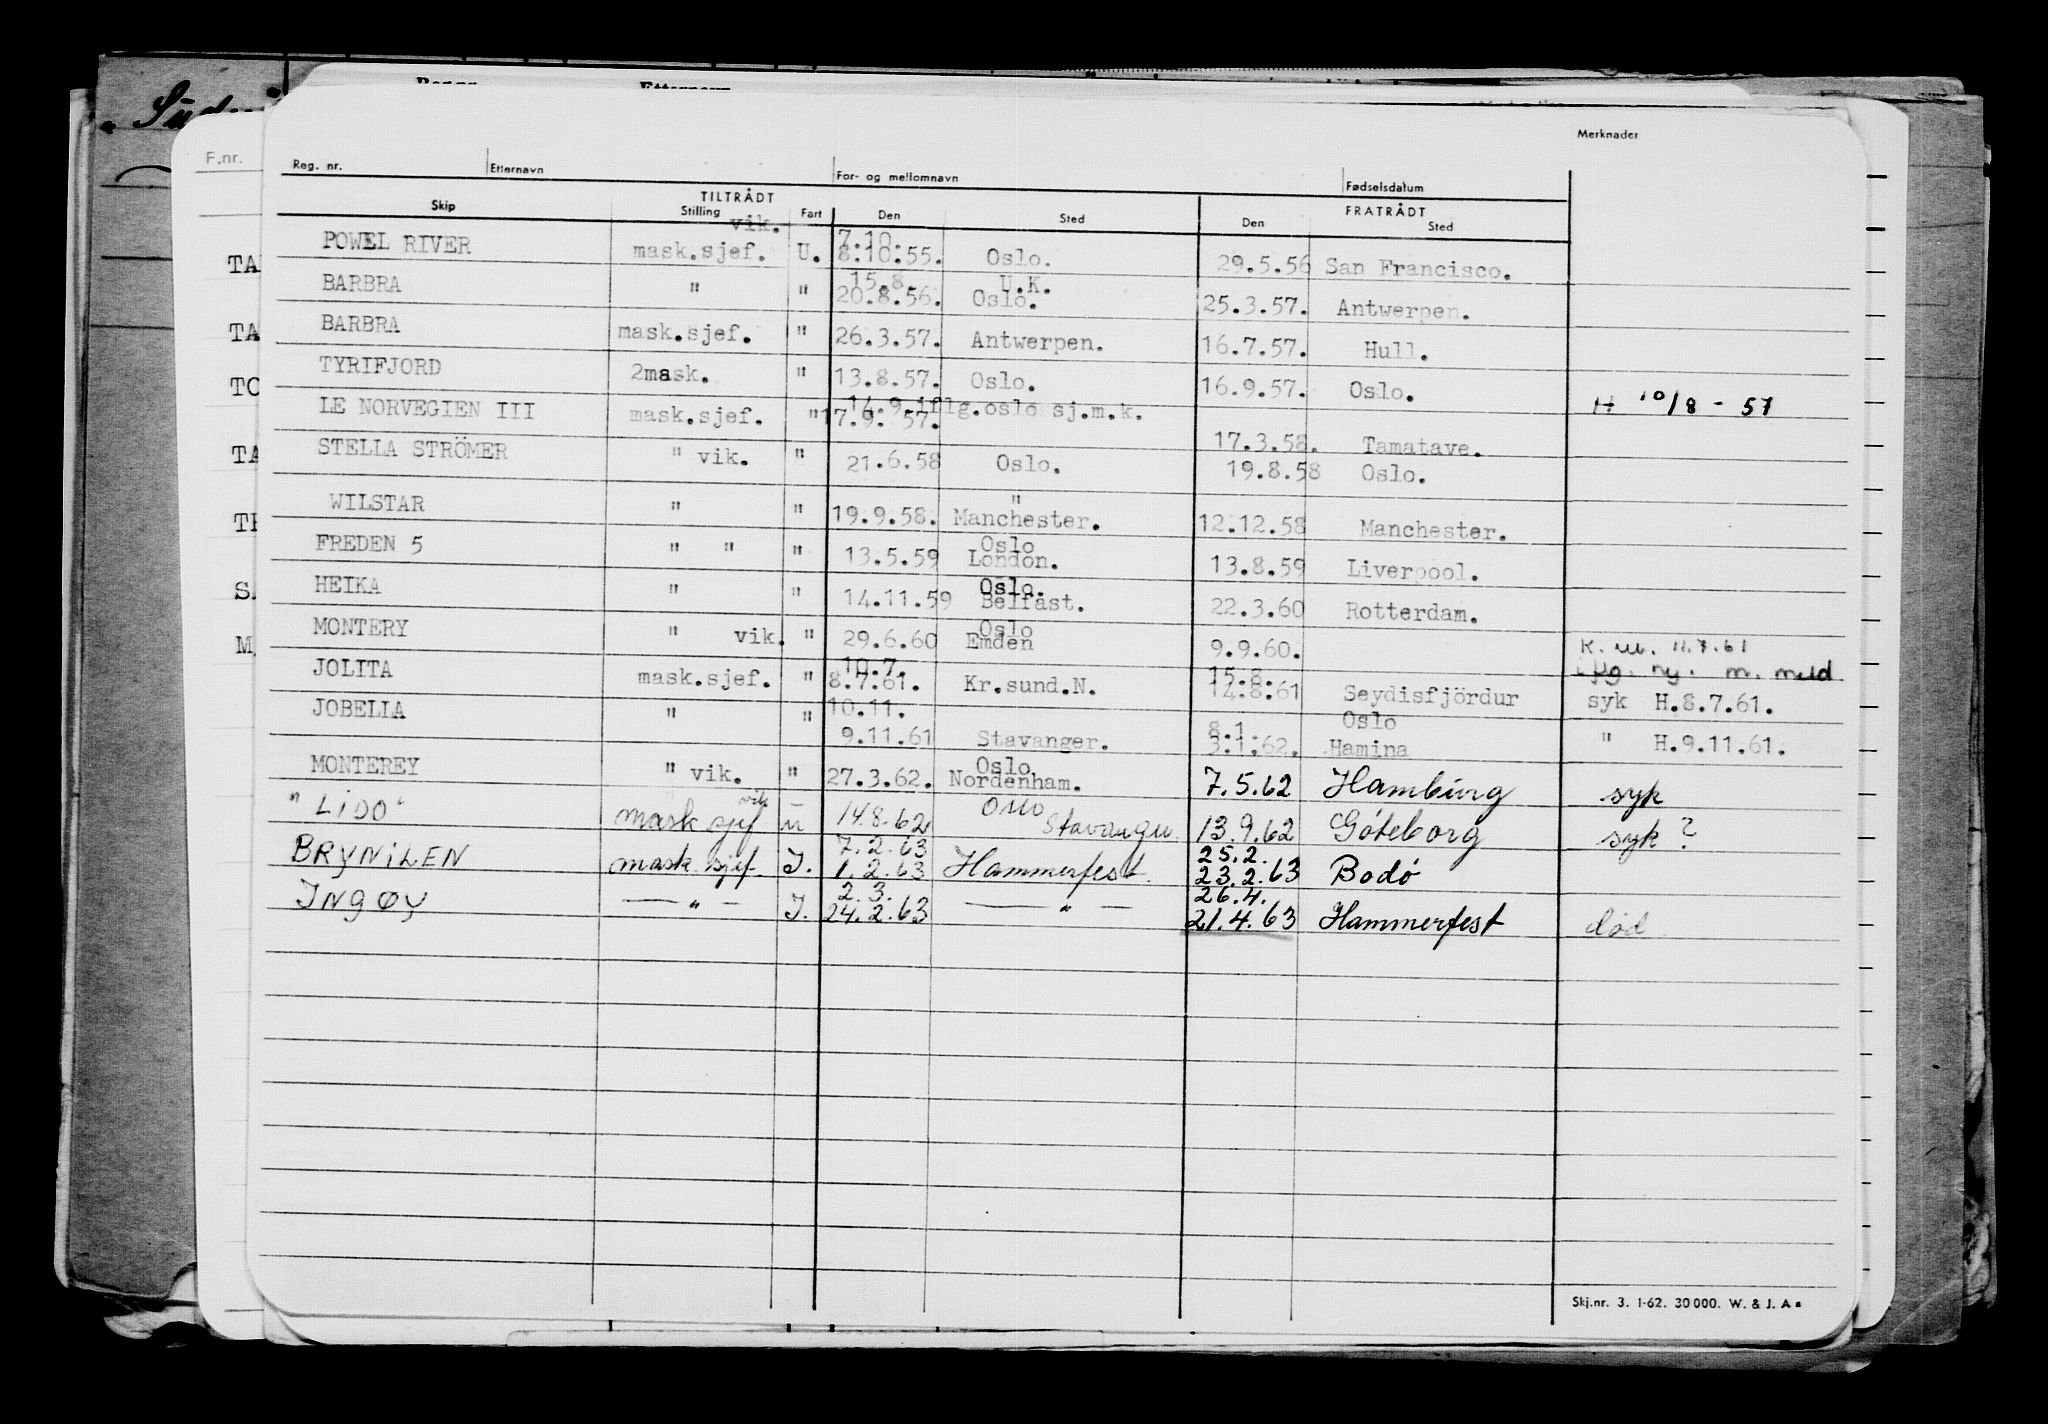 Merknader
F.nr.
Reg. nr. Etternavn For- og mellomnavn Fødselsdatum
TILTRÅDT FRATRÅDT
Skip Stilling Fart Den Sted Den Sted
vik. 7.10.
POWEL RIVER mask.sjef. U. 8.10.55. Oslo. 29.5.56 San Francisco.
15.8. U.K.
BARBRA " " 20.8.56. Oslo. 25.3.57. Antwerpen.
BARBRA mask.sjef. " 26.3.57. Antwerpen. 16.7.57. Hull.
TYRIFJORD 2mask. " 13.8.57. Oslo. 16.9.57. Oslo. H 10/8 - 57
14.9.iflg.oslo sj.m.k.
LE NORVEGIEN III mask.sjef. " 17.9.57. 17.3.58. Tamatave.
STELLA STRÖMER " vik. " 21.6.58 Oslo. 19.8.58 Oslo.
"
WILSTAR " " 19.9.58. Manchester. 12.12.58 Manchester.
Oslo
FREDEN 5 " " " 13.5.59 London. 13.8.59 Liverpool.
Oslo.
HEIKA " " 14.11.59 Belfast. 22.3.60 Rotterdam.
Oslo
MONTERY " vik. " 29.6.60 Emden 9.9.60. K. m. 11.7.61
10.7. 15.8. ny. m. meld
JOLITA mask.sjef. " 8.7.61. Kr.sund.N. 14.8.61 Seydisfjördur syk H.8.7.61.
JOBELLA " " 10.11. 8.1. Oslo
9.11.61 Stavanger. 3.1.62. Hamina " H.9.11.61.
Oslo
MONTEREY " vik. " 27.3.62. Nordenham. 7.5.62 Hamburg syk
vik Oslo
"LIDO" mask sjef u 14.8.62 Stavanger. 13.9.62 Göteborg syk?
7.2.63 25.2.
BRYNILEN mask. sjef. I. 1.2.63 Hammerfest. 23.2.63 Bodö
2.3. 26.4.
INGØY — " — I. 24.2.63 — " — 21.4.63 Hammerfest død
Skj.nr. 3. 1-62. 30 000. W. & J. A s